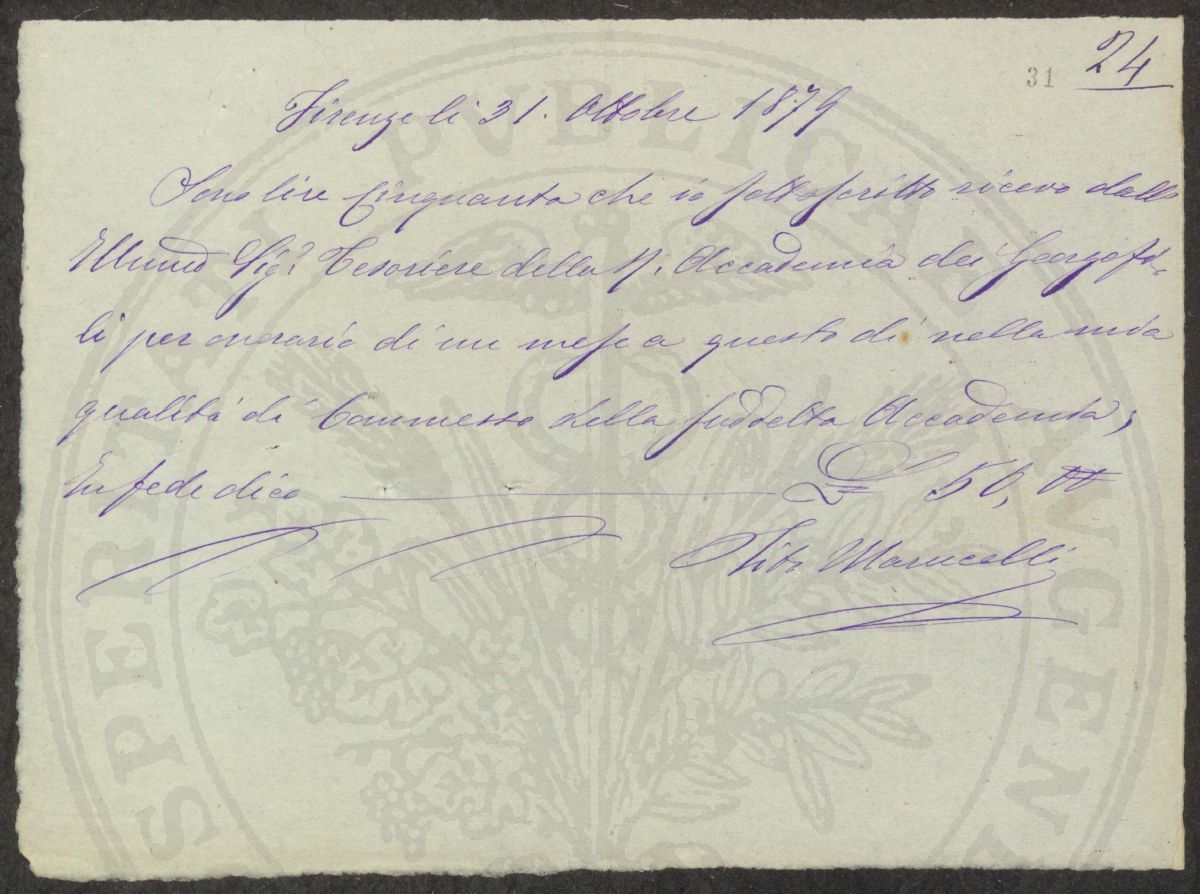 31 24
Firenze li 31. Ottobre 1879
Sono lire Cinquanta che io sottoscritto ricevo dallo
Illmo Sigr Tesoriere della R. Accademia dei Georgofi-
li per onorario di un mese a questo dì nella mia
qualità di Commesso della suddetta Accademia,
In fede dico £ 50, 00
Tito Marucelli
PVBLICAE
SPERITATI
AVGEN